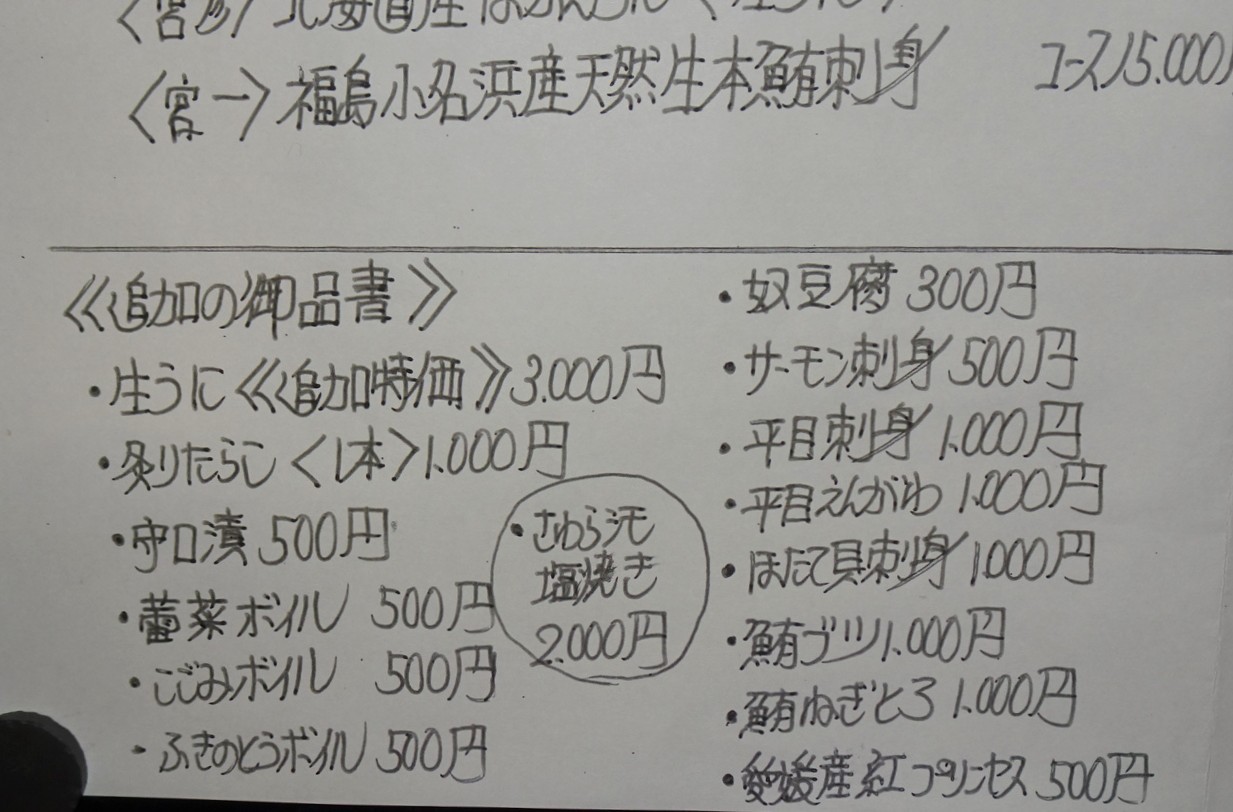 〈宮一〉福島小名浜産天然生本鮪刺身 コース15.000
《追加の御品書》
・生うに《追加特価》3.000円
・炙りたらこ〈1本〉1.000円
・守口漬 500円
・蕾菜ボイル 500円
・こごみボイル 500円
・ふきのとうボイル 500円
・さわら汐
塩焼き
2.000円
・奴豆腐 300円
・サーモン刺身 500円
・平目刺身 1.000円
・平目えんがわ 1.000円
・ほたて貝刺身 1.000円
・鮪ブツ 1.000円
・鮪ねぎとろ 1.000円
・愛媛産紅プリンセス 500円